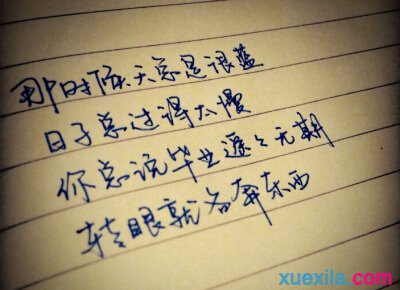 那时候天总是很蓝
日子总过得太慢
你总说毕业遥遥无期
转眼就各奔东西
xuexila.com